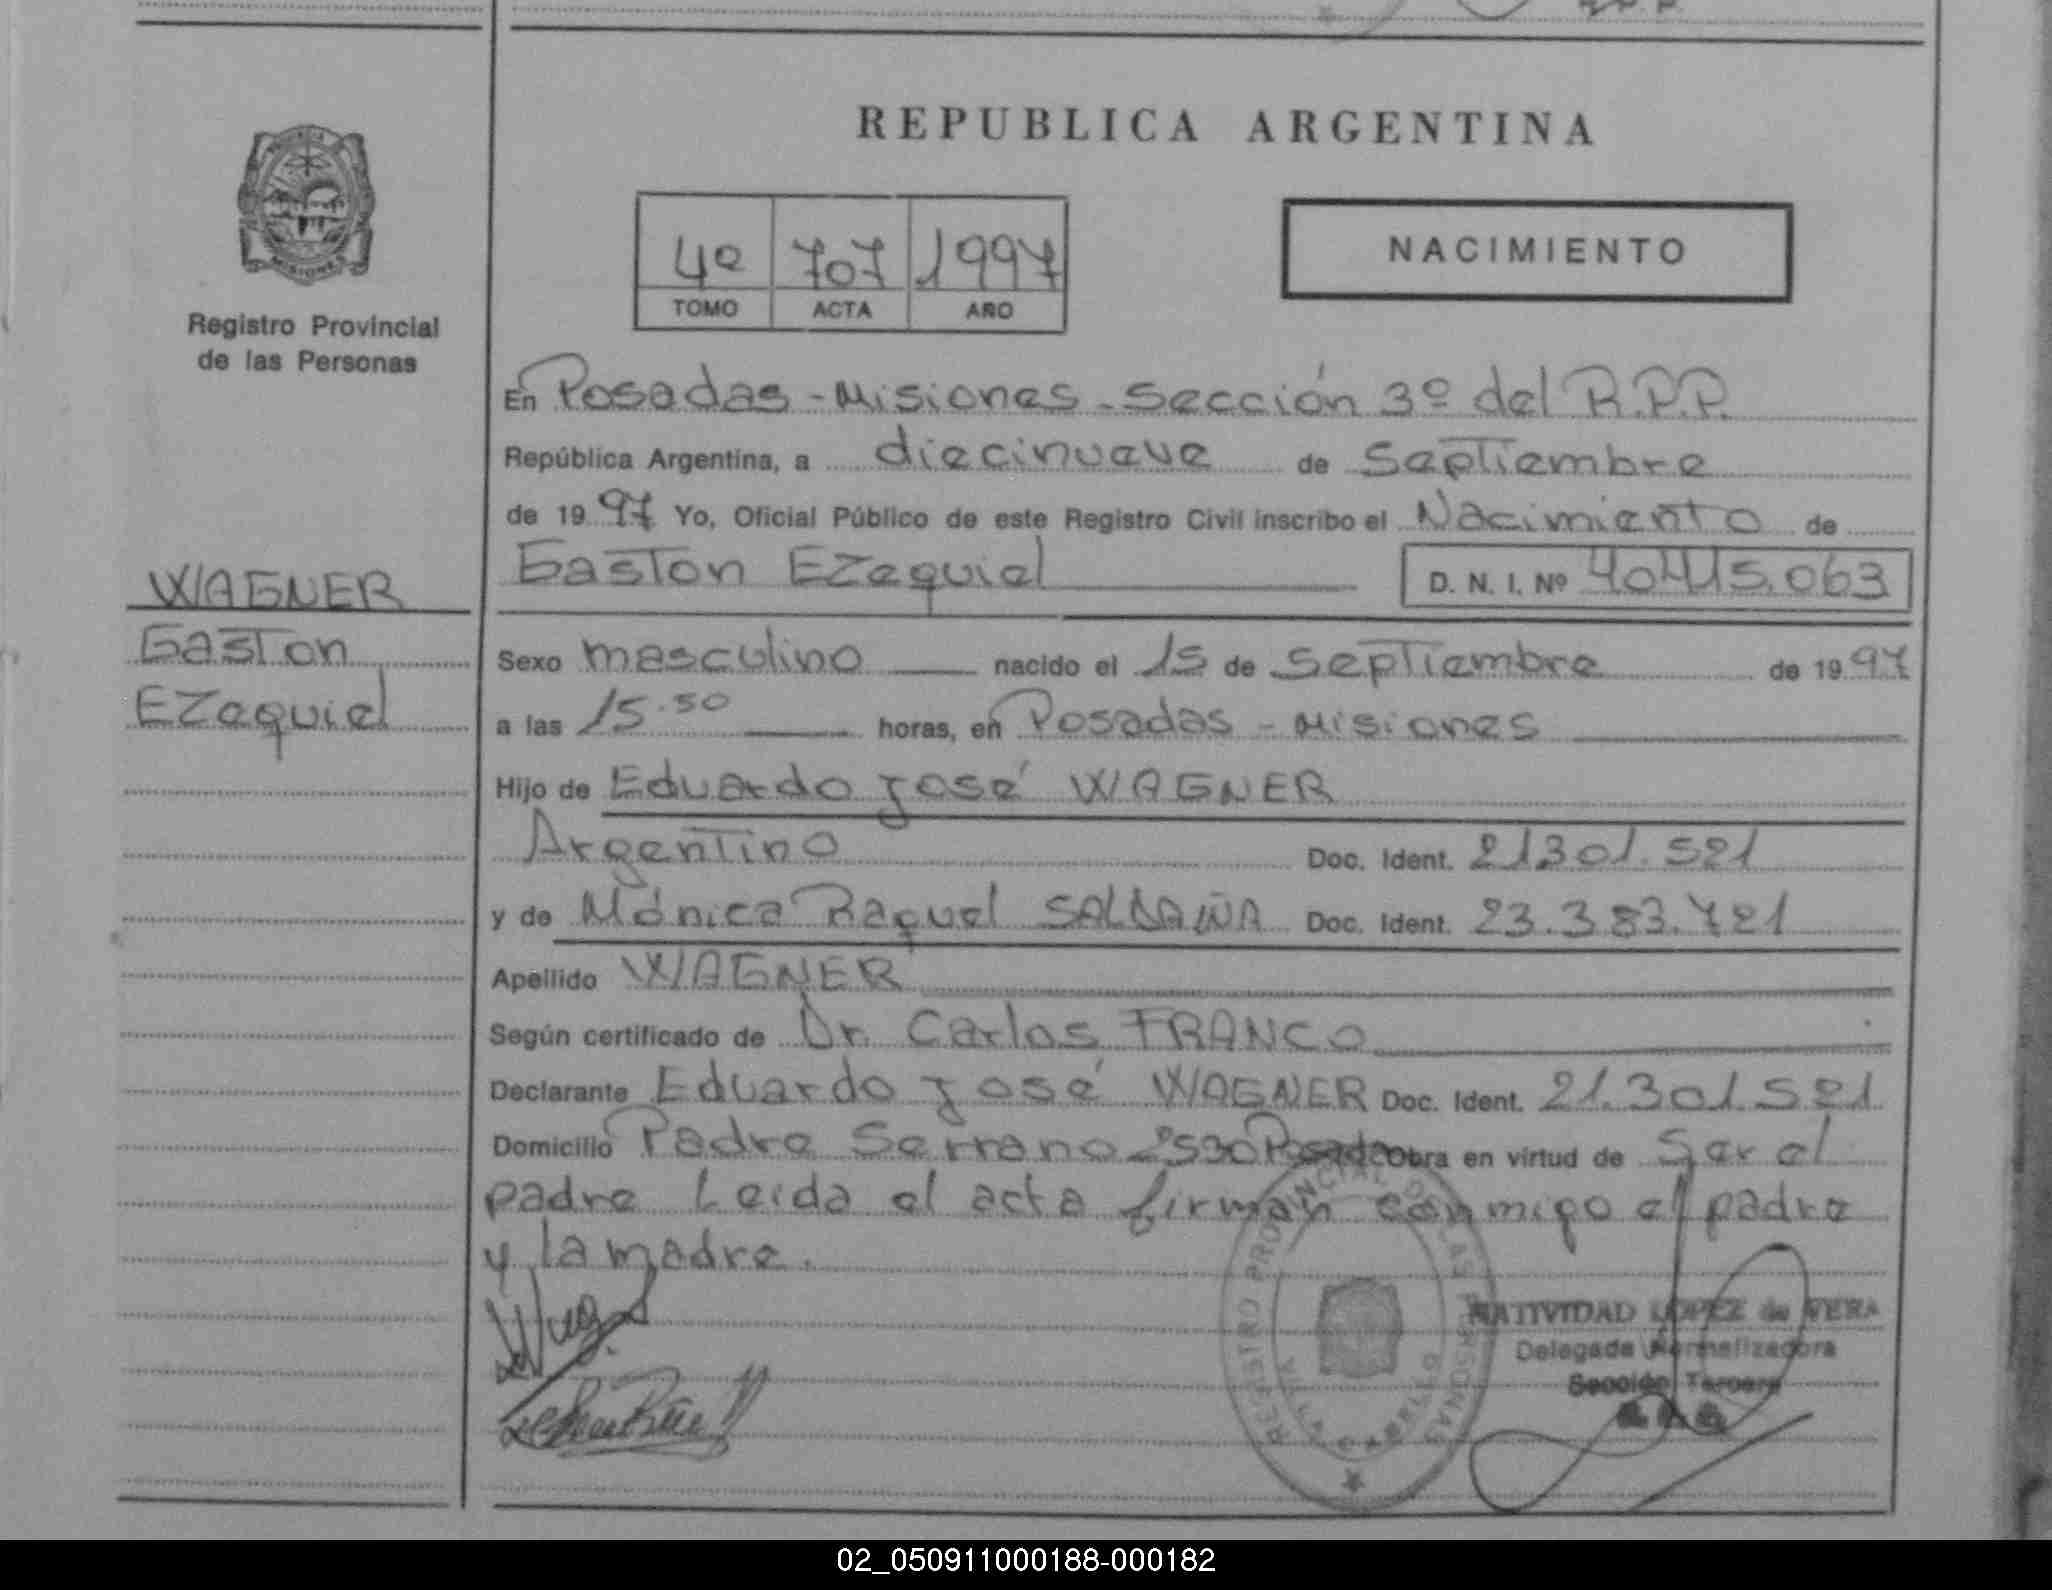 REPUBLICA ARGENTINA
MISIONES
Registro Provincial
de las Personas
4º 707 1997
TOMO ACTA AÑO
NACIMIENTO
En Posadas - Misiones - Sección 3º del R.P.P.
República Argentina, a diecinueve de Septiembre
de 1997 Yo, Oficial Público de este Registro Civil inscribo el Nacimiento de
Gaston Ezequiel D. N. I. Nº 40.415.063
WAGNER
Gaston
Ezequiel
Sexo masculino nacido el 15 de Septiembre de 1997
a las 15.50 horas, en Posadas - Misiones
Hijo de Eduardo José WAGNER
Argentino Doc. Ident. 21.301.521
y de Mónica Raquel SALDAÑA Doc. Ident. 23.383.721
Apellido WAGNER
Según certificado de Dr. Carlos FRANCO
Declarante Eduardo José WAGNER Doc. Ident. 21.301.521
Domicilio Padre Serrano 2530 Posadas Obra en virtud de Ser el
padre Leida el acta firman conmigo el padre
y la madre.
REGISTRO PROVINCIAL DE LAS PERSONAS
VILLA CABELLO
NATIVIDAD LOPEZ de VERA
Delegada Normalizadora
Sección Tercera
02_050911000188-000182